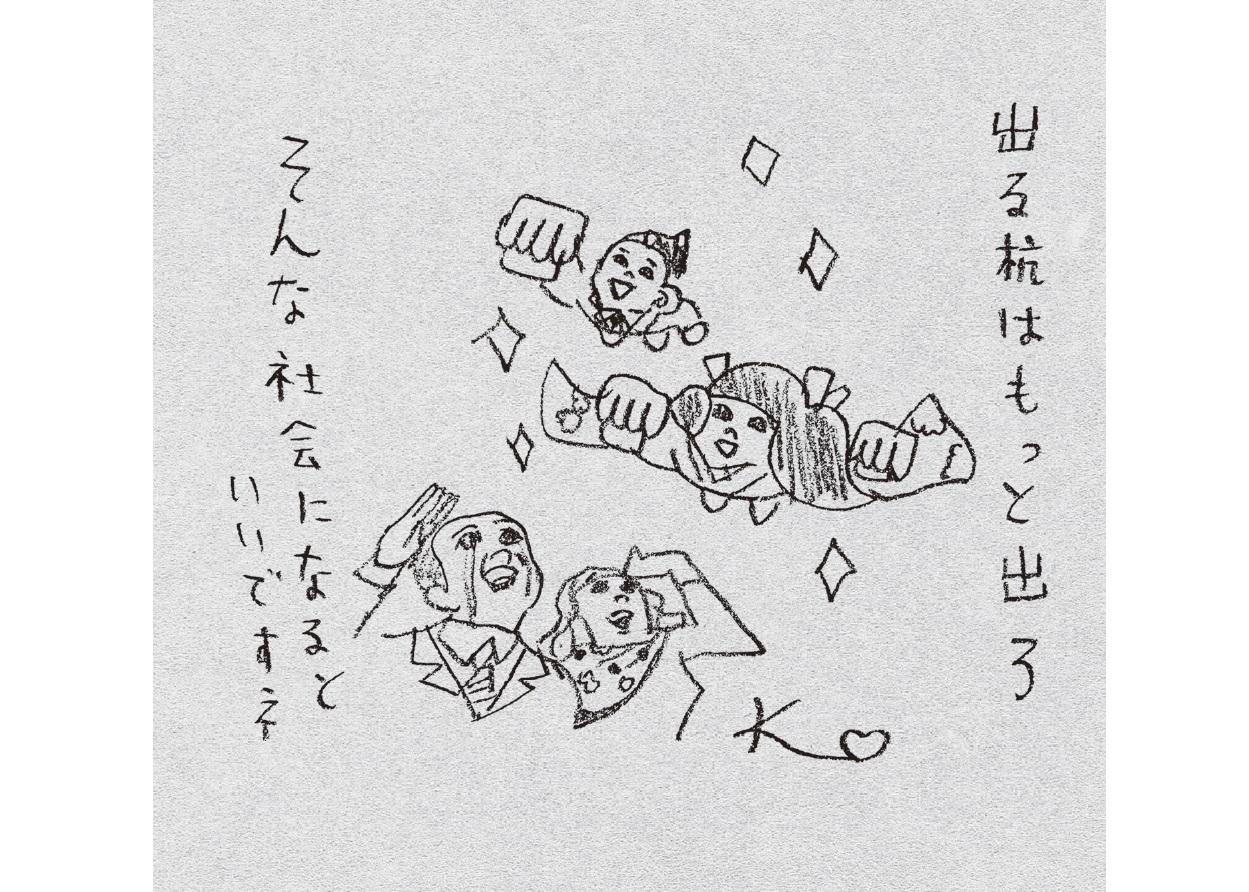 出る杭はもっと出ろ
そんな社会になると
いいですネ
K